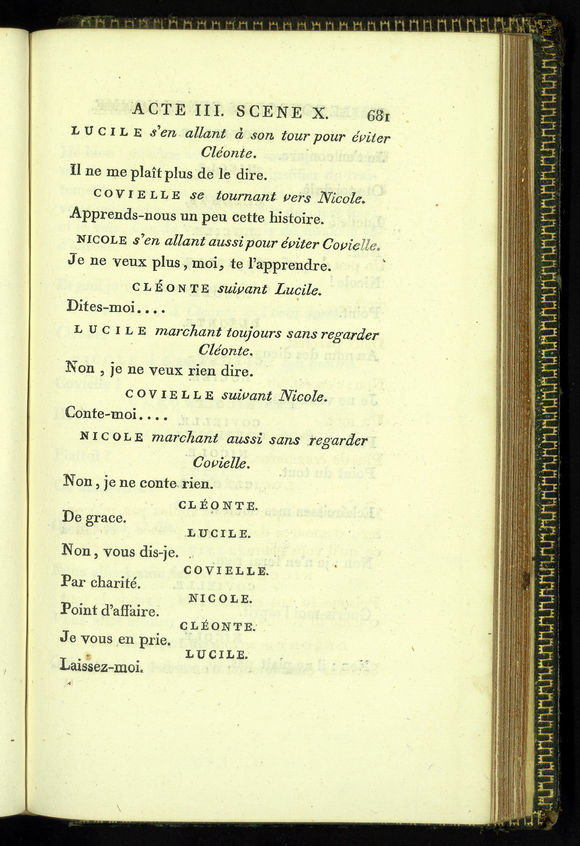 ACTE III. SCENE X. 681
LUCILE s'en allant à son tour pour éviter
Cléonte.
Il ne me plaît plus de le dire.
COVIELLE se tournant vers Nicole.
Apprends-nous un peu cette histoire.
NICOLE s'en allant aussi pour éviter Covielle.
Je ne veux plus, moi, te l'apprendre.
CLÉONTE suivant Lucile.
Dites-moi....
LUCILE marchant toujours sans regarder
Cléonte.
Non, je ne veux rien dire.
COVIELLE suivant Nicole.
Conte-moi....
NICOLE marchant aussi sans regarder
Covielle.
Non, je ne conte rien.
CLÉONTE.
De grace.
LUCILE.
Non, vous dis-je.
COVIELLE.
Par charité.
NICOLE.
Point d'affaire.
CLÉONTE.
Je vous en prie.
LUCILE.
Laissez-moi.